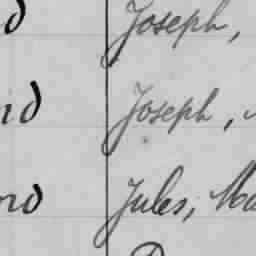 d Joseph,
nd Joseph,
nd Jules, Ma